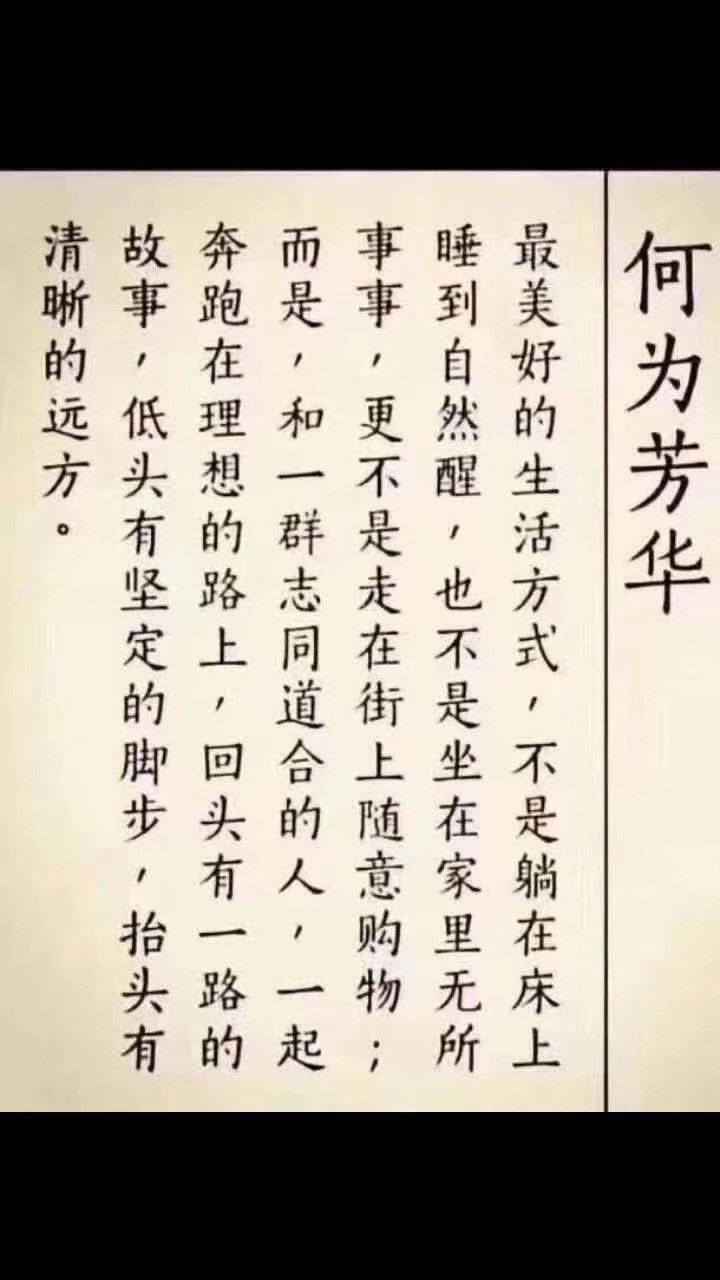 何为芳华
最美好的生活方式，不是躺在床上
睡到自然醒，也不是坐在家里无所
事事，更不是走在街上随意购物；
而是，和一群志同道合的人，一起
奔跑在理想的路上，回头有一路的
故事，低头有坚定的脚步，抬头有
清晰的远方。